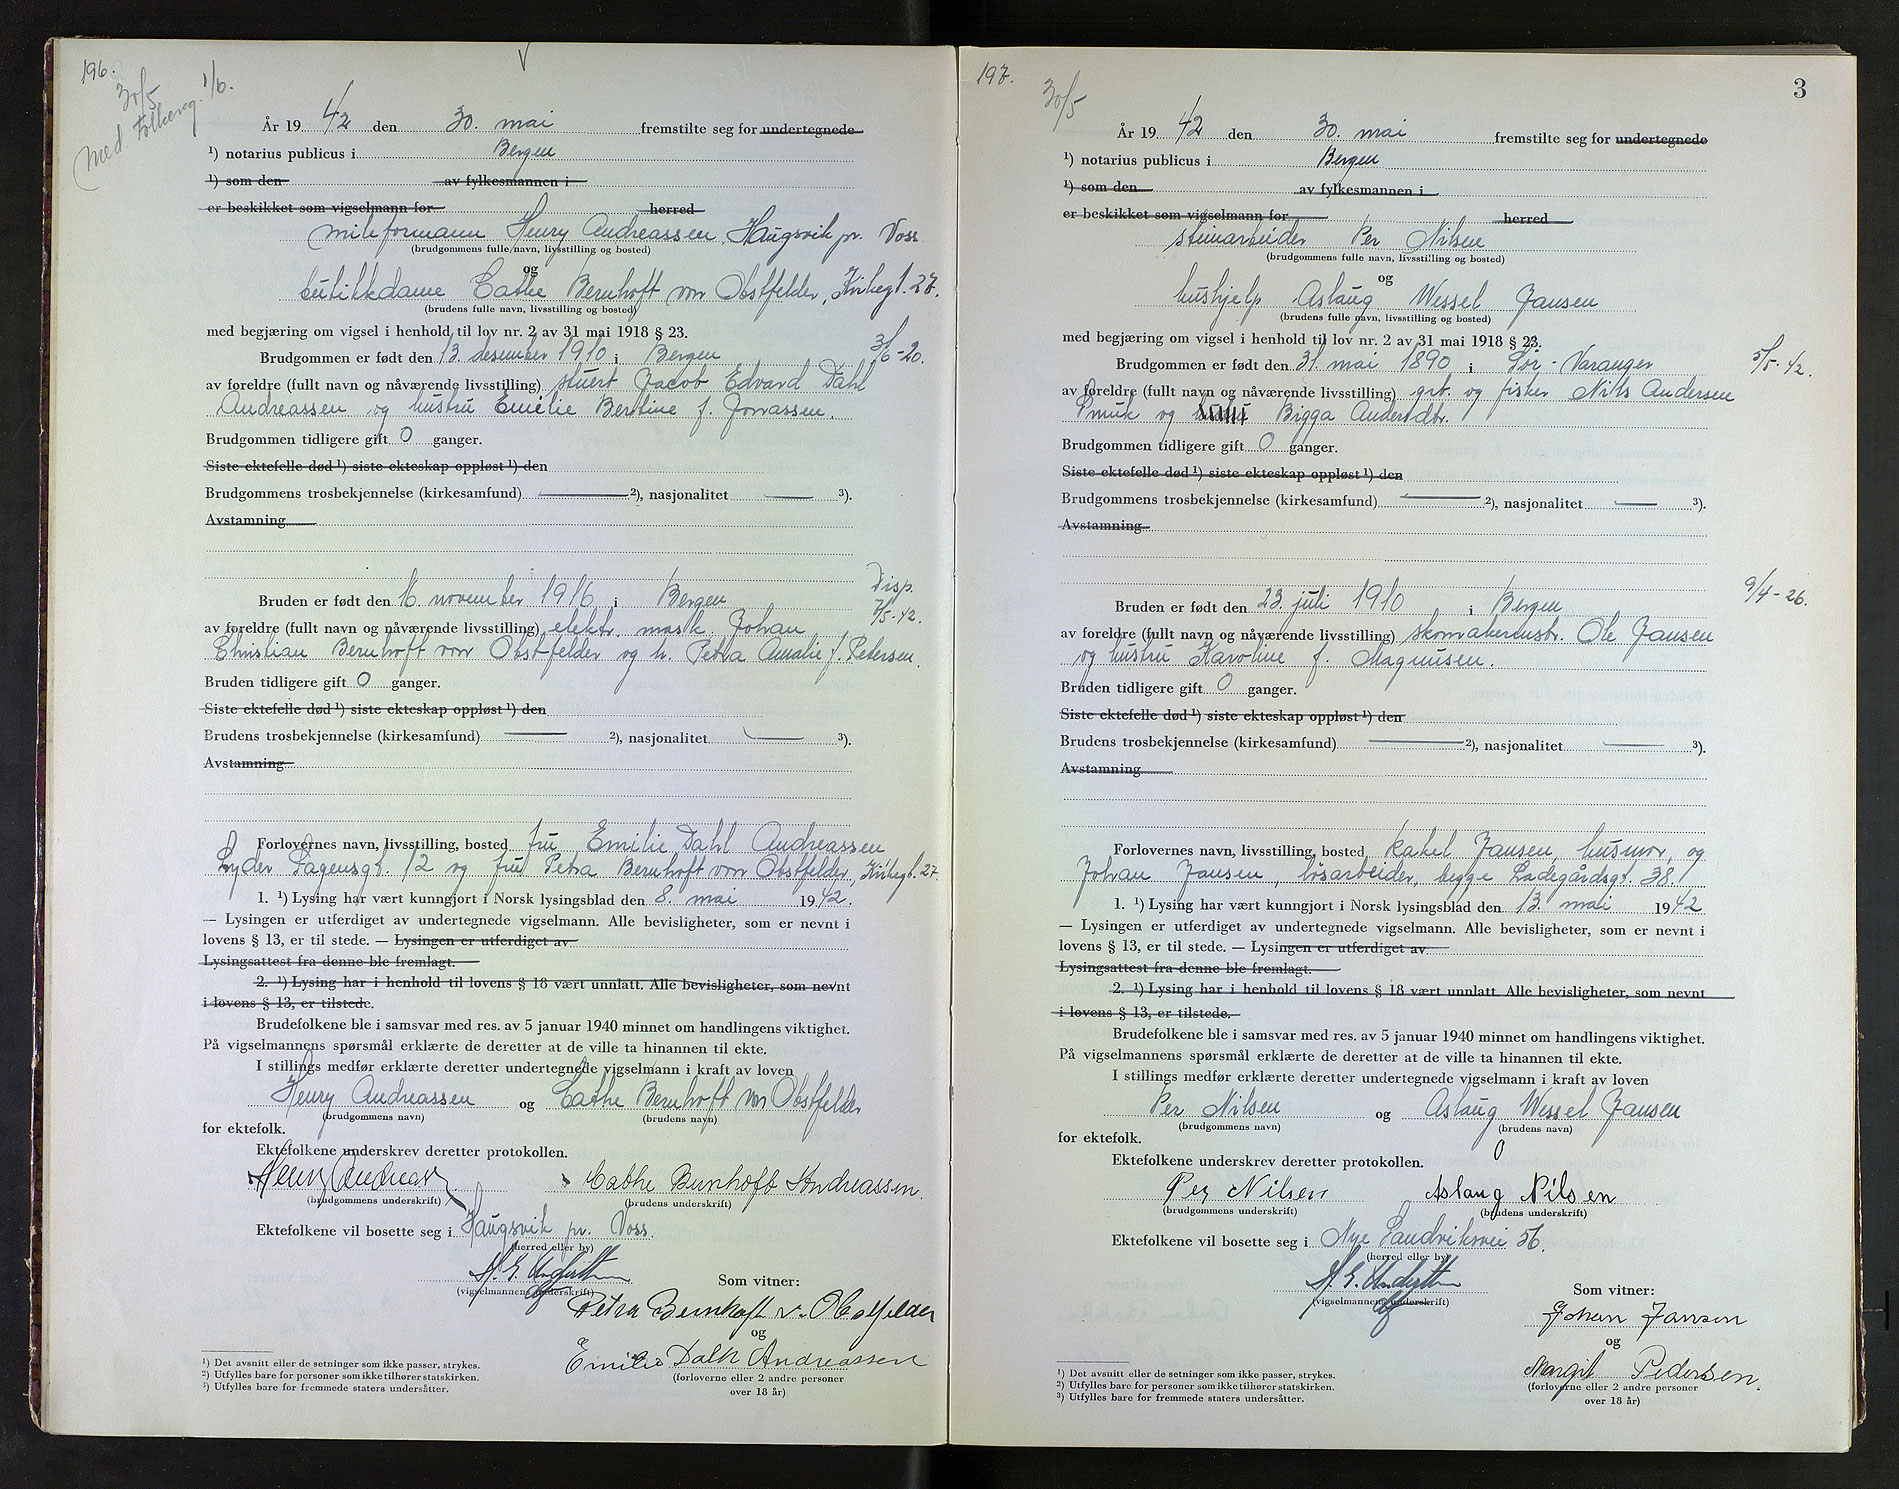 196.
30/5
Med. Folkereg. 1/6.
År 1942 den 30. mai fremstilte seg for undertegnede
¹) notarius publicus i Bergen
¹) som den av fylkesmannen i
er beskikket som vigselmann for herred
Henry Andreassen, Haugsvik pr. Voss
(brudgommens fulle navn, livsstilling og bosted)
og
butikkdame Cathe Bernhoft von Obstfelder, Kirkegt. 27.
(brudens fulle navn, livsstilling og bosted)
med begjæring om vigsel i henhold til lov nr. 2 av 31 mai 1918 § 23.
Brudgommen er født den 13. desember 1910 i Bergen 3/6-20.
av foreldre (fullt navn og nåværende livsstilling) stuert Jacob Edvard Dahl
Andreassen og hustru Emelie Bertine f. Jonassen.
Brudgommen tidligere gift 0 ganger.
Siste ektefelle død ¹) siste ekteskap oppløst ¹) den
Brudgommens trosbekjennelse (kirkesamfund) ²), nasjonalitet ³).
Avstamning
Disp.
Bruden er født den 16. november 1916 i Bergen 7/5-42.
av foreldre (fullt navn og nåværende livsstilling) elektr. mask. Johan
Christian Bernhoft von Obstfelder og h. Petra Amalie f. Petersen.
Bruden tidligere gift 0 ganger.
Siste ektefelle død ¹) siste ekteskap oppløst ¹) den
Brudens trosbekjennelse (kirkesamfund) ²), nasjonalitet ³).
Avstamning
Forlovernes navn, livsstilling, bosted fru Emilie Dahl Andreassen
Lyder Sagensgt. 12 og fru Petra Bernhoft von Obstfelder, Kirkegt. 27
1. ¹) Lysing har vært kunngjort i Norsk lysingsblad den 8. mai 1942.
— Lysingen er utferdiget av undertegnede vigselmann. Alle bevisligheter, som er nevnt i
lovens § 13, er til stede. — Lysingen er utferdiget av
Lysingsattest fra denne ble fremlagt.
2. ¹) Lysing har i henhold til lovens § 18 vært unnlatt. Alle bevisligheter, som nevnt
i lovens § 13, er tilstede.
Brudefolkene ble i samsvar med res. av 5 januar 1940 minnet om handlingens viktighet.
På vigselmannens spørsmål erklærte de deretter at de ville ta hinannen til ekte.
I stillings medfør erklærte deretter undertegnede vigselmann i kraft av loven
Henry Andreassen og Cathe Bernhoft von Obstfelder
(brudgommens navn) (brudens navn)
for ektefolk.
Ektefolkene underskrev deretter protokollen.
Henry Andreassen Cathe Bernhoft Andreassen.
(brudgommens underskrift) (brudens underskrift)
Ektefolkene vil bosette seg i Haugsvik pr. Voss.
(herred eller by)
Som vitner:
(vigselmannens underskrift)
Petra Bernhoft v. Obstfelder
og
Emilie Dahl Andreassen
(forloverne eller 2 andre personer
over 18 år)
¹) Det avsnitt eller de setninger som ikke passer, strykes.
²) Utfylles bare for personer som ikke tilhører statskirken.
³) Utfylles bare for fremmede staters undersåtter.
197.
30/5
3
År 1942 den 30. mai fremstilte seg for undertegnede
¹) notarius publicus i Bergen
¹) som den av fylkesmannen i
er beskikket som vigselmann for herred
steinarbeider Per Nilsen
(brudgommens fulle navn, livsstilling og bosted)
og
hushjelp Aslaug Wessel Jansen
(brudens fulle navn, livsstilling og bosted)
med begjæring om vigsel i henhold til lov nr. 2 av 31 mai 1918 § 23.
Brudgommen er født den 31. mai 1890 i Sør-Varanger 5/5-42.
av foreldre (fullt navn og nåværende livsstilling) grb. og fisker Nils Andersen
Smuk og Bigga Andersdtr.
Brudgommen tidligere gift 0 ganger.
Siste ektefelle død ¹) siste ekteskap oppløst ¹) den
Brudgommens trosbekjennelse (kirkesamfund) ²), nasjonalitet ³).
Avstamning
Bruden er født den 23. juli 1910 i Bergen 9/4-26.
av foreldre (fullt navn og nåværende livsstilling) skomakermstr. Ole Jansen
og hustru Karoline f. Magnusen.
Bruden tidligere gift 0 ganger.
Siste ektefelle død ¹) siste ekteskap oppløst ¹) den
Brudens trosbekjennelse (kirkesamfund) ²), nasjonalitet ³).
Avstamning
Forlovernes navn, livsstilling, bosted Rakel Jansen, husmor, og
Johan Jansen, løsarbeider, begge Ladegårdsgt. 38.
1. ¹) Lysing har vært kunngjort i Norsk lysingsblad den 13. mai 1942
— Lysingen er utferdiget av undertegnede vigselmann. Alle bevisligheter, som er nevnt i
lovens § 13, er til stede. — Lysingen er utferdiget av
Lysingsattest fra denne ble fremlagt.
2. ¹) Lysing har i henhold til lovens § 18 vært unnlatt. Alle bevisligheter, som nevnt
i lovens § 13, er tilstede.
Brudefolkene ble i samsvar med res. av 5 januar 1940 minnet om handlingens viktighet.
På vigselmannens spørsmål erklærte de deretter at de ville ta hinannen til ekte.
I stillings medfør erklærte deretter undertegnede vigselmann i kraft av loven
Per Nilsen og Aslaug Wessel Jansen
(brudgommens navn) (brudens navn)
for ektefolk.
Ektefolkene underskrev deretter protokollen.
Per Nilsen Aslaug Nilsen
(brudgommens underskrift) (brudens underskrift)
Ektefolkene vil bosette seg i Nye Sandviksvei 56.
(herred eller by)
Som vitner:
(vigselmannens underskrift)
Johan Jansen
og
Margit Pedersen.
(forloverne eller 2 andre personer
over 18 år)
¹) Det avsnitt eller de setninger som ikke passer, strykes.
²) Utfylles bare for personer som ikke tilhører statskirken.
³) Utfylles bare for fremmede staters undersåtter.